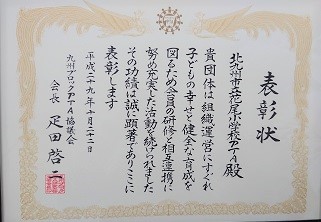 表彰状
北九州市立花尾小学校PTA殿
貴団体は組織運営にすぐれ
子どもの幸せと健全な育成を
図るため会員の研修と相互連携に
努め充実した活動を続けられました
その功績は誠に顕著でありここに
表彰します
平成二十九年十月二十二日
九州ブロックPTA協議会
会長 疋田啓二